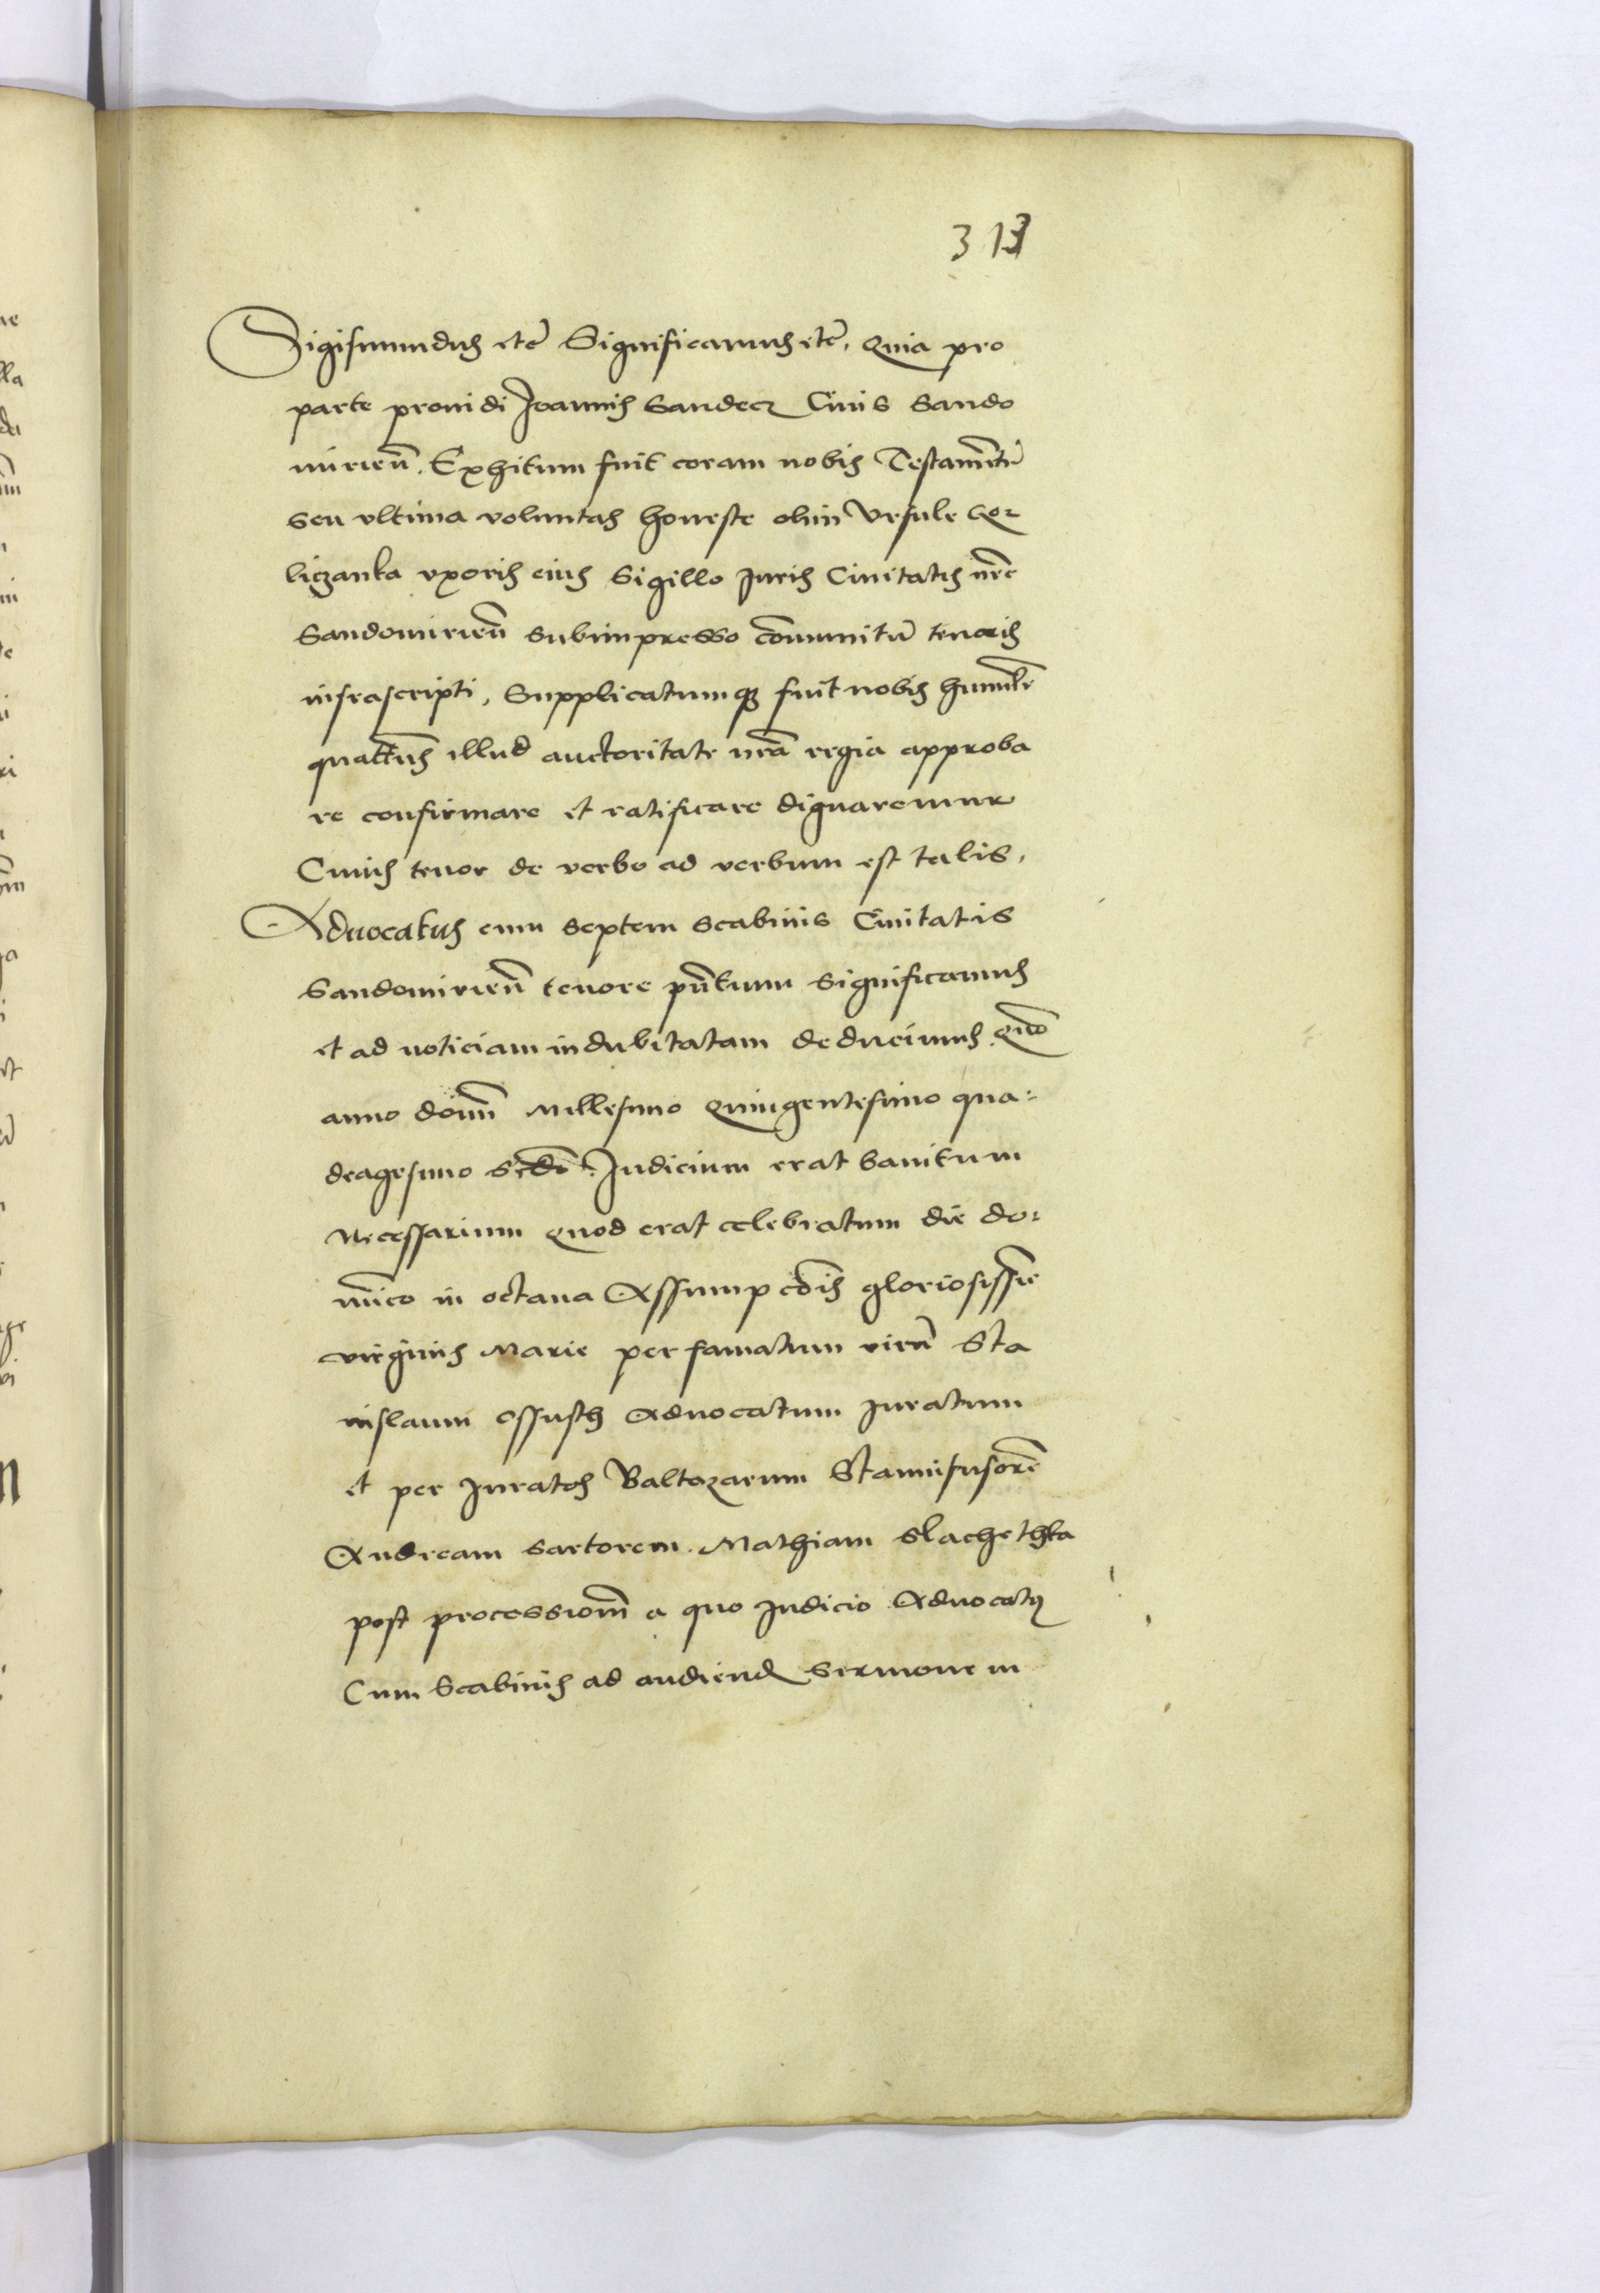 313
Sigismundus etc̄ Significamus etc̄, Quia pro
parte prouidi Joannis Sandecz Ciuis Sando
mirien̄. Exhitum fuit coram nobis Testamentū
seu vltima voluntas honeste olim Vrsule Gor
liczanka vxoris eius Sigillo Juris Ciuitatis nr̄e
Sandomirien̄ subimpresso com̄unitū tenoris
infrascripti, Supplicatumq3 fuit nobis humilr̄
quat̄us illud auctoritate nrā regia approba
re confirmare et ratificare dignaremur
Cuius tenor de verbo ad verbum est talis,
Aduocatus cum septem scabinis Ciuitatis
Sandomirien̄ tenore pn̄tium significamus
et ad noticiam indubitatam deducimus. Quō
anno dom̄ Millesimo Quingentesimo qua:
dragesimo Scdō. Judicium erat banitum
Necessarium quod erat celebratum die do:
mīco in octaua Assumpcōis gloriosissīe
virginis Marie per famatum virū Sta
nislaum Ossusth Aduocatum Juratum
et per Juratos Baltazarum Stannifusorē
Andream sartorem. Mathiam Slachethka
post processionm̄ a quo Judicio Aduocatus
Cum Scabinis ad audiend sermonem